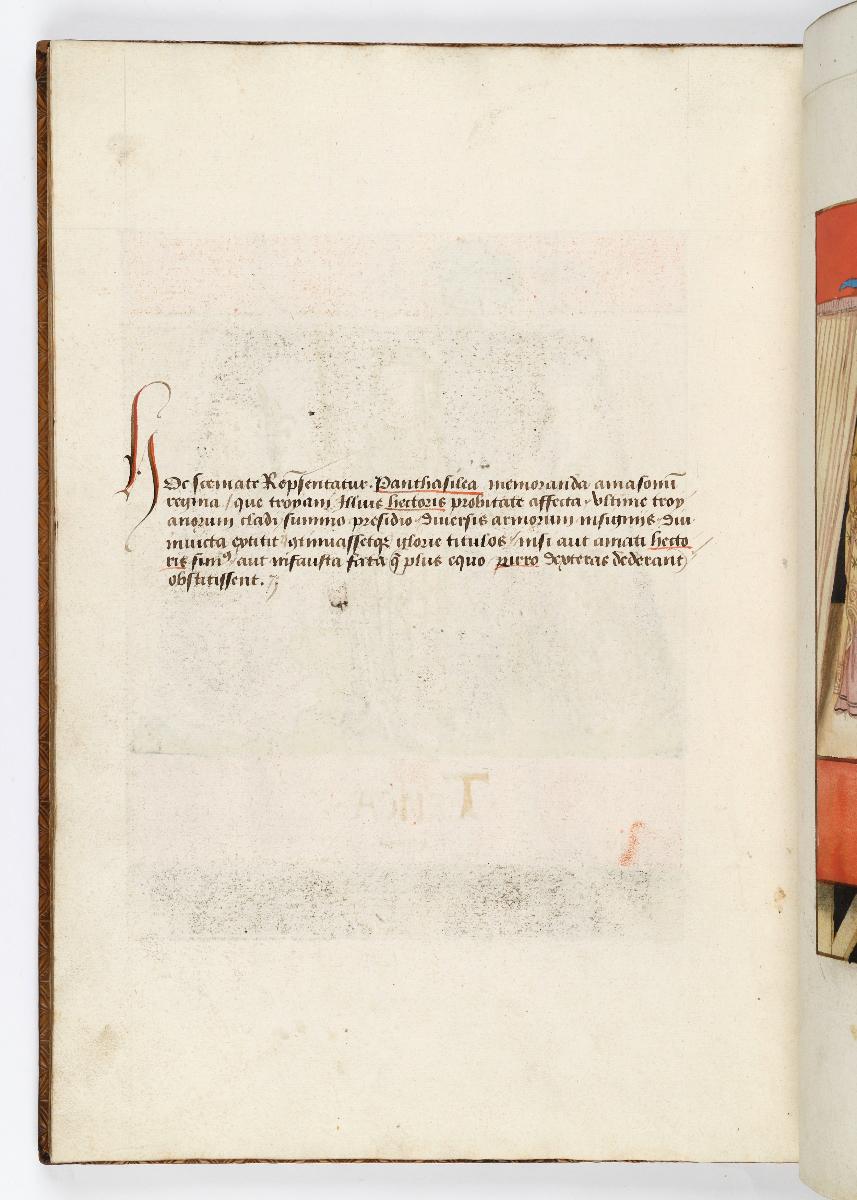 Hoc scemate Rep̃sentatur. Panthasilea memoranda amasonũ
regina / que troyani Illius hectoris probitate affecta / vltime troy
anorum cladi summo presidio / diuersis armorum insigniis / diu
inuicta extitit / 9tinuassetq̃ glorie titulos / nisi aut amati hecto
ris funꝰ / aut infausta fata q̃ plus equo pirro dexteras dederant /
obstitissent.